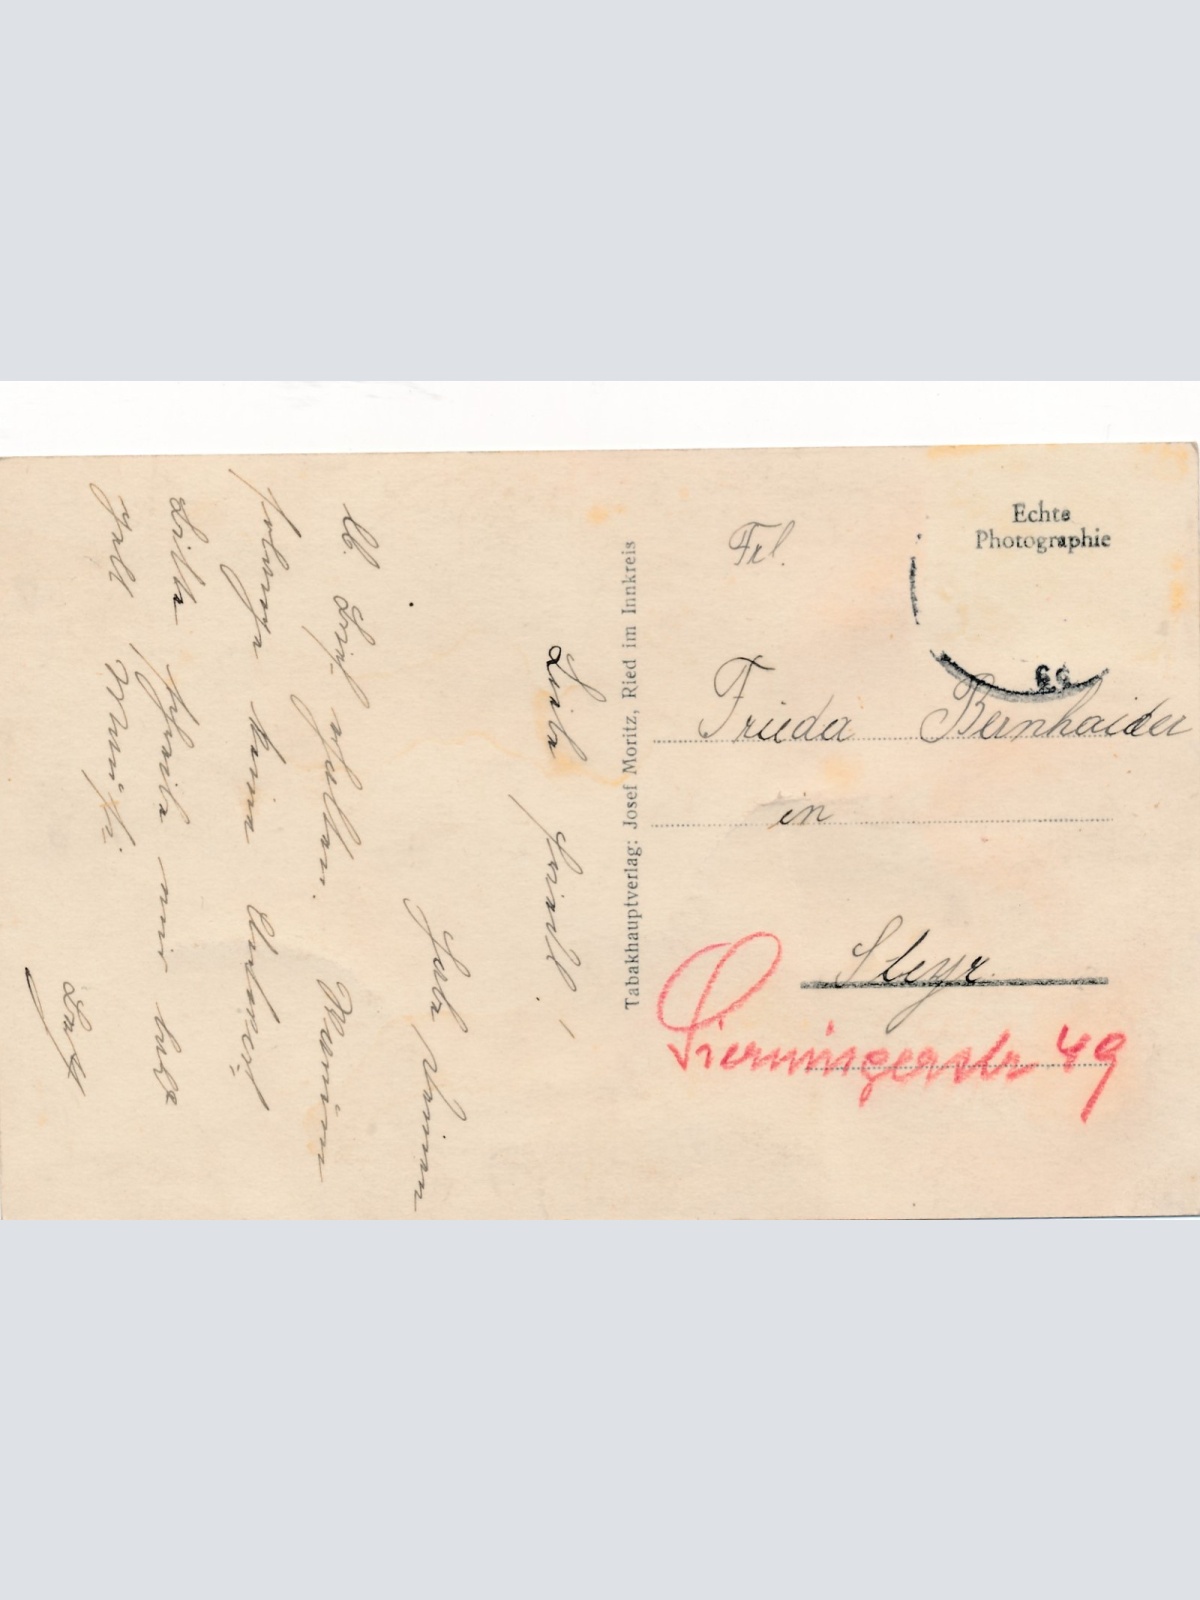 Liebe Friedl!
Habe Deinen
lb. Brief erhalten. Warum
solange keine Antwort
Bitte schreibe mir bald
Mimi
Echte
Photographie
Frl.
Frieda Bernhaider
in
Steyr
Sierningerstr 49
Tabakhauptverlag: Josef Moritz, Ried im Innkreis